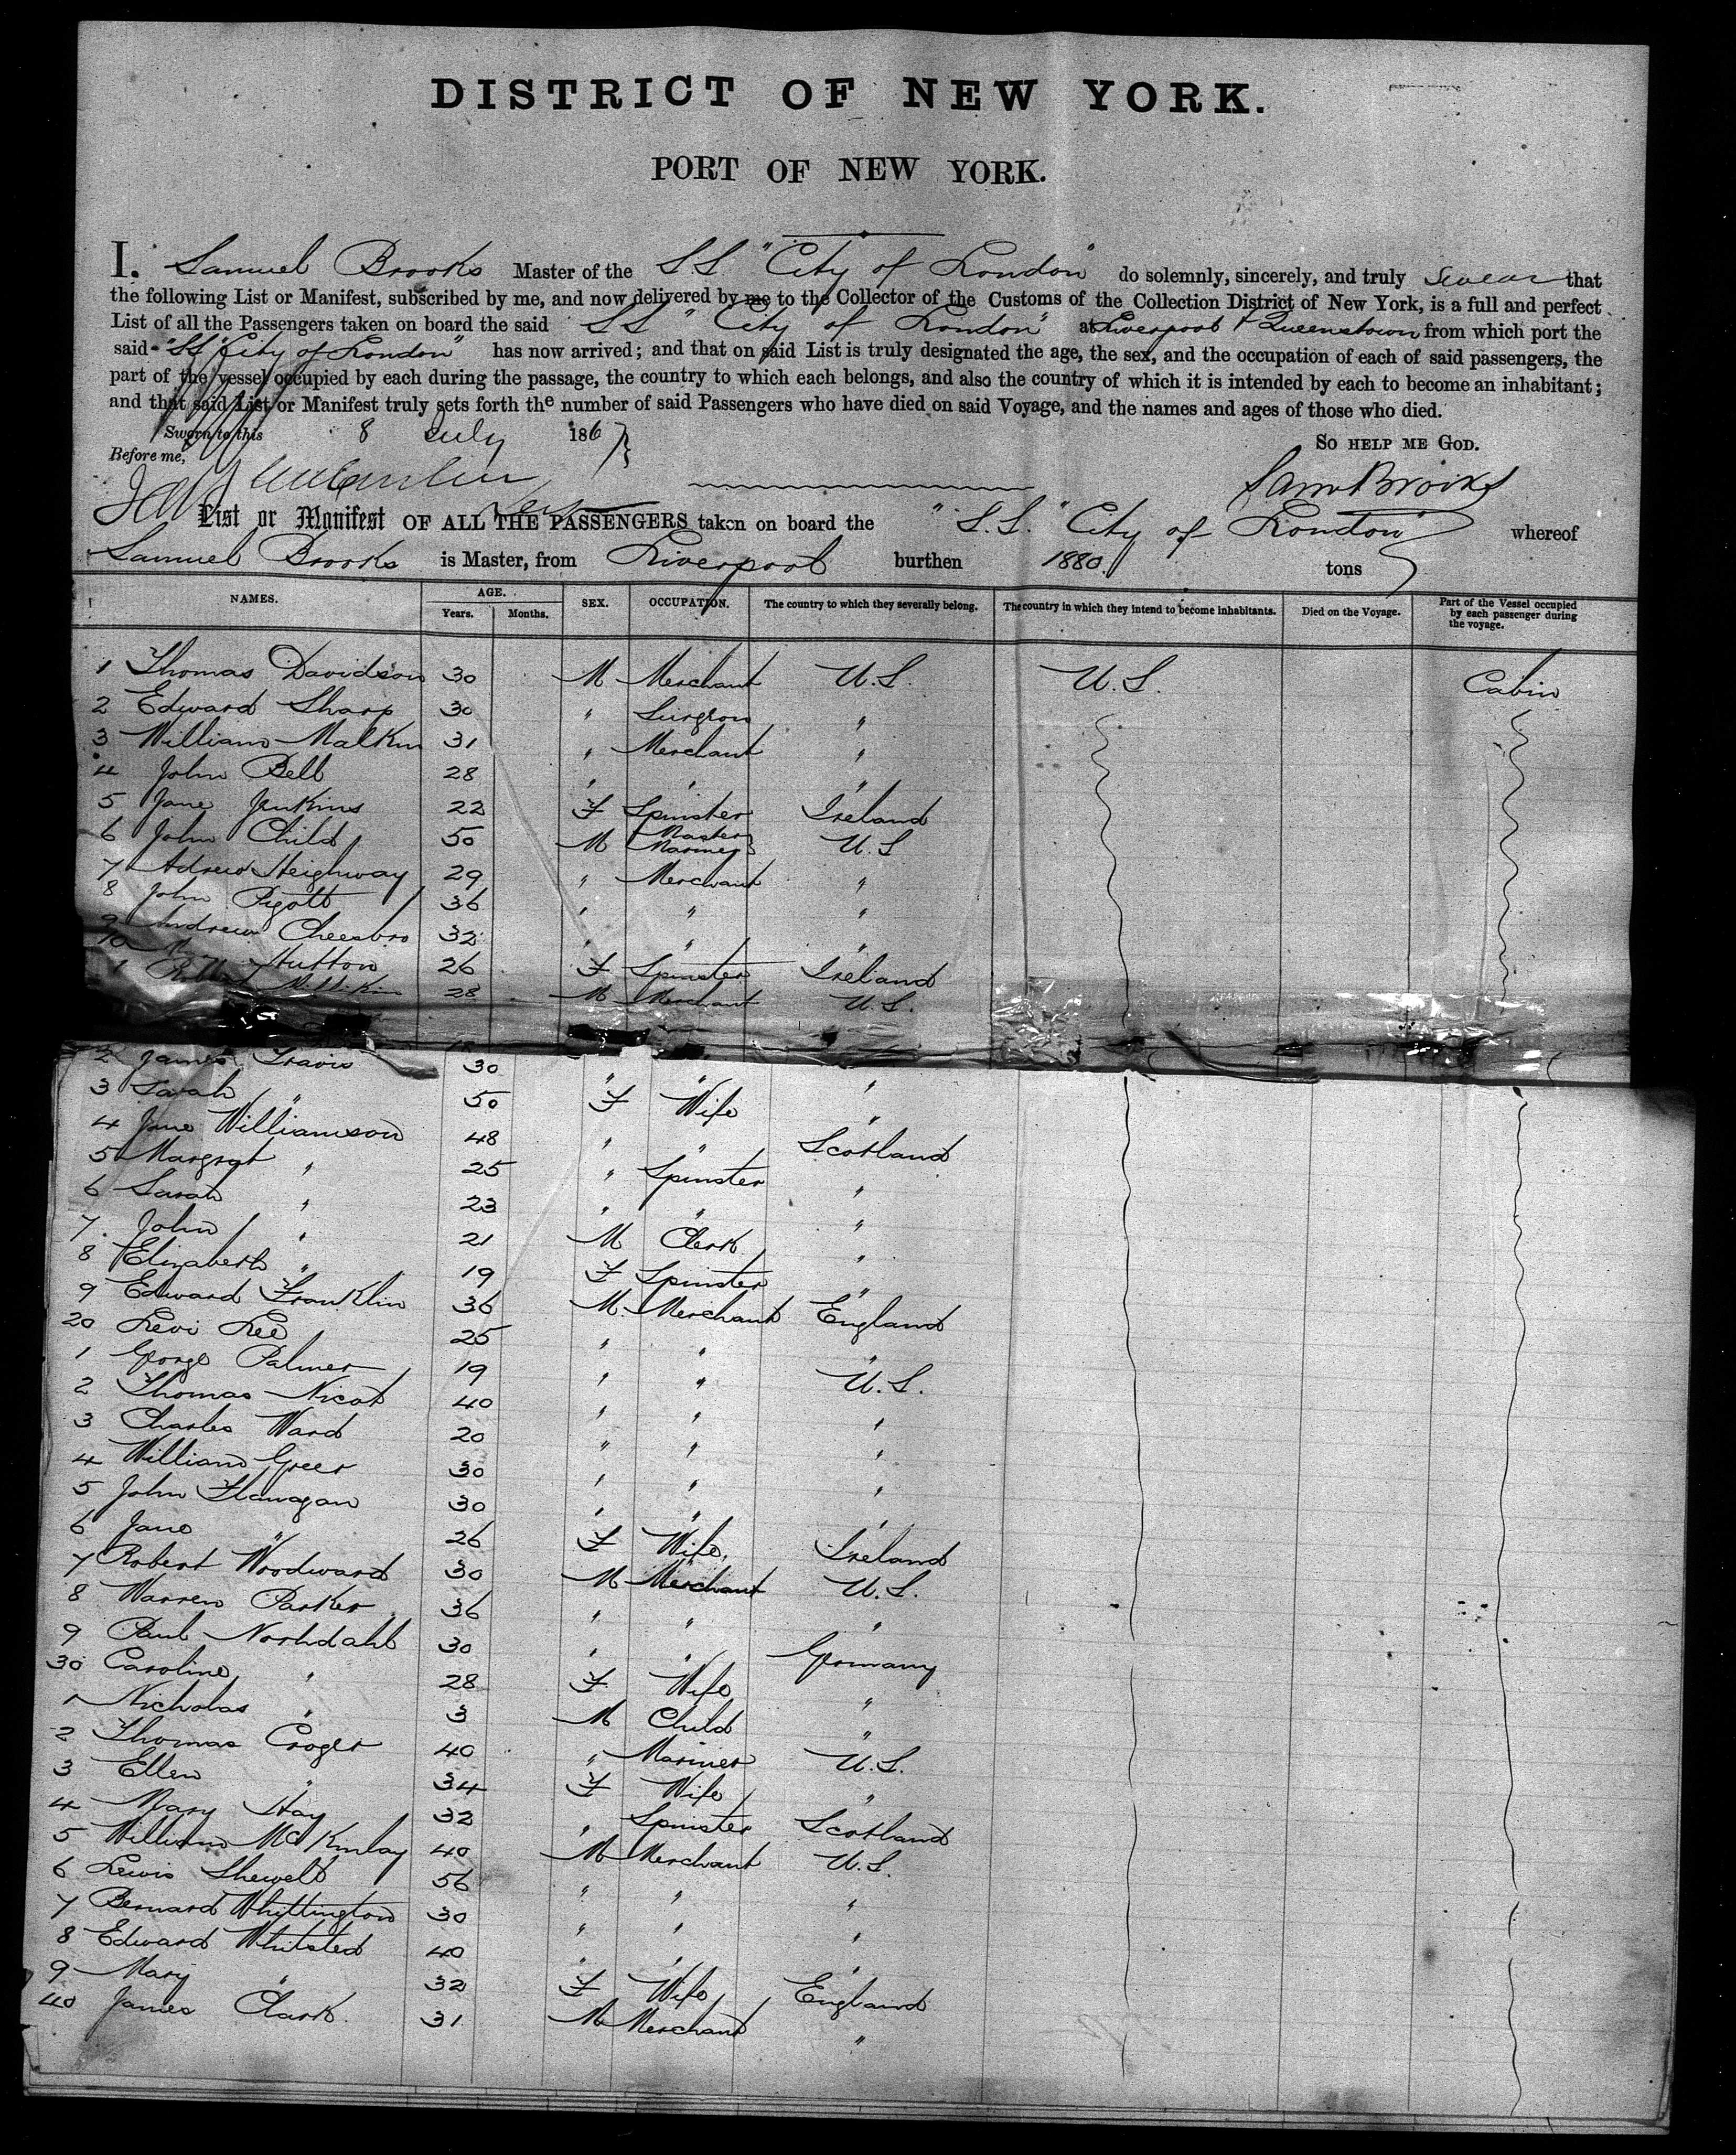 DISTRICT OF NEW YORK.
PORT OF NEW YORK.
I, Samuel Brooks Master of the S.S. "City of London" do solemnly, sincerely, and truly swear that
the following List or Manifest, subscribed by me, and now delivered by me to the Collector of the Customs of the Collection District of New York, is a full and perfect
List of all the Passengers taken on board the said SS "City of London" at Liverpool & Queenstown from which port the
said "SS City of London" has now arrived; and that on said List is truly designated the age, the sex, and the occupation of each of said passengers, the
part of the vessel occupied by each during the passage, the country to which each belongs, and also the country of which it is intended by each to become an inhabitant;
and that said List or Manifest truly sets forth the number of said Passengers who have died on said Voyage, and the names and ages of those who died.
Sworn to this 8 July 186
So help me God.
Before me,
Sam Brooks
List or Manifest OF ALL THE PASSENGERS taken on board the "S.S. "City of London" whereof
Samuel Brooks is Master, from Liverpool burthen 1880 tons
NAMES. AGE. Years. Months. SEX. OCCUPATION. The country to which they severally belong. The country in which they intend to become inhabitants. Died on the Voyage. Part of the Vessel occupied by each passenger during the voyage.
1 Thomas Davidson 30 M Merchant U.S. U.S. Cabin
2 Edward Sharp 30 " Surgeon "
3 William Malkin 31 " Merchant "
4 John Bell 28 " " "
5 Jane Jenkins 22 F Spinster Ireland
6 John Child 50 M Master Mariner U.S
7 Adrew Heighway 29 " Merchant "
8 John Pigott 36 " " "
9 Andrew Cheesbro 32 " " "
10 Hutton 26 F Spinster Ireland
1 28 M Merchant U.S.
2 James Travis 30 " " "
3 Sarah " 50 F Wife "
4 Jane Williamson 48 " " Scotland
5 Margrat " 25 " Spinster "
6 Sarah " 23 " " "
7 John " 21 M Clerk "
8 Elizabeth " 19 F Spinster "
9 Edward Franklin 36 M Merchant England
20 Levi Lee 25 " " "
1 George Palmer 19 " " U.S.
2 Thomas Nicot 40 " " "
3 Charles Ward 20 " " "
4 William Greer 30 " " "
5 John Flanagan 30 " " "
6 Jane " 26 F Wife Ireland
7 Robert Woodward 30 M Merchant U.S.
8 Warren Parker 36 " " "
9 Paul Northdahl 30 " " Germany
30 Caroline " 28 F Wife "
1 Nicholas " 3 M Child "
2 Thomas Croger 40 " Mariner U.S.
3 Ellen " 34 F Wife "
4 Mary Hay 32 " Spinster Scotland
5 William McKinlay 40 M Merchant U.S.
6 Lewis Shewell 56 " " "
7 Bernard Whittington 30 " " "
8 Edward Whitsted 40 " " "
9 Mary " 32 F Wife England
40 James Clark 31 M Merchant "